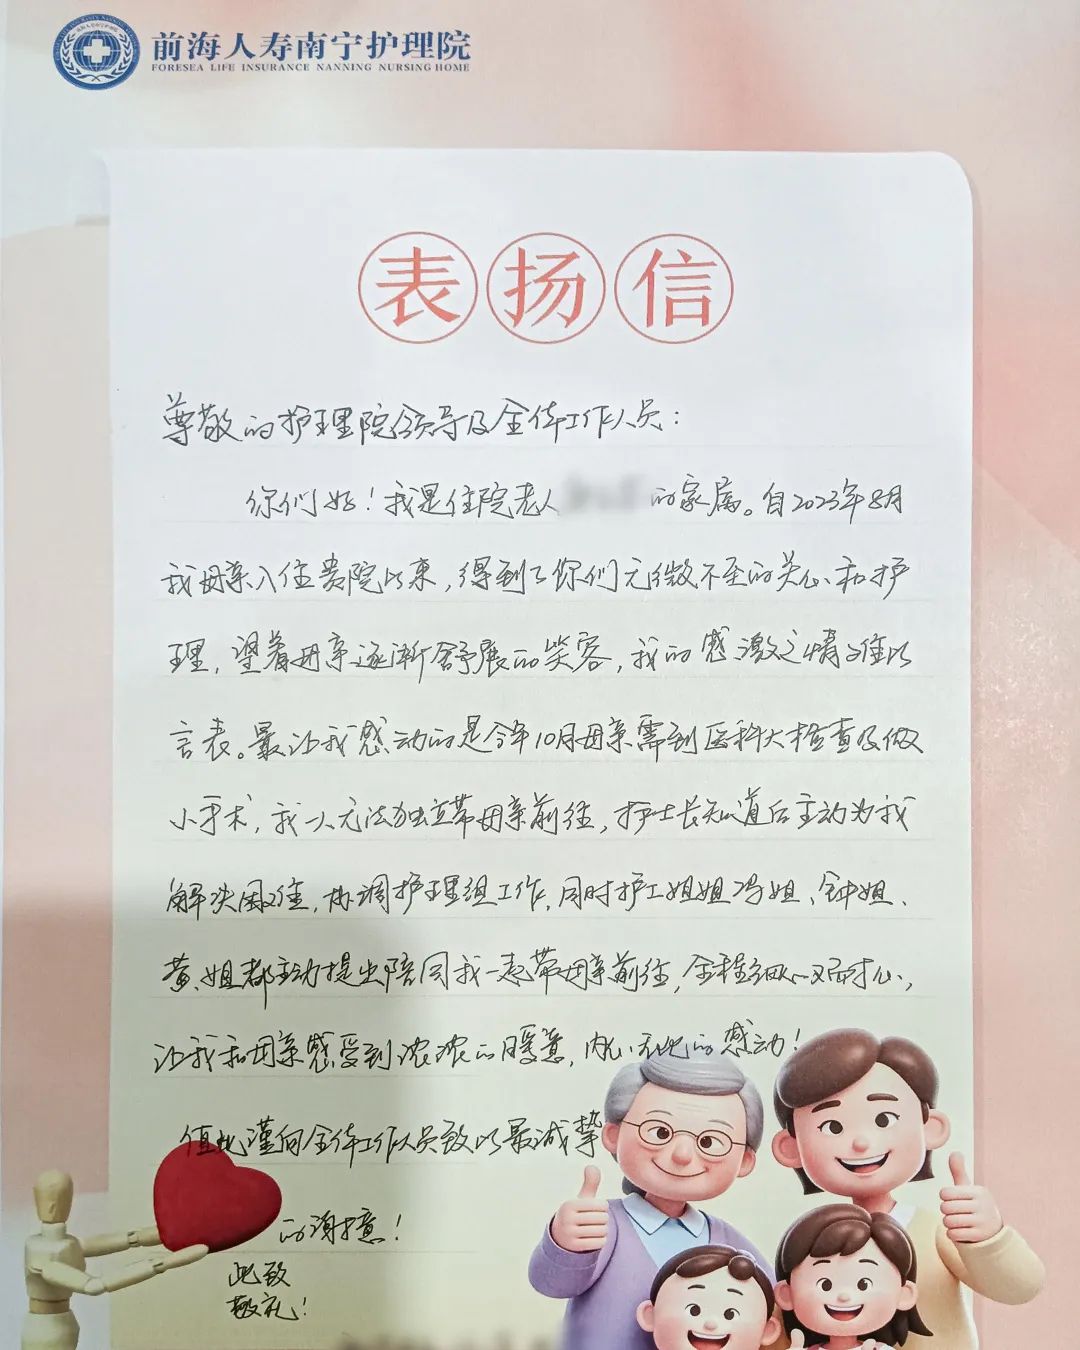 前海人寿南宁护理院
FORESEA LIFE INSURANCE NANNING NURSING HOME
表扬信
尊敬的护理院领导及全体工作人员：
你们好！我是住院老人的家属。自2023年8月
我母亲入住贵院以来，得到了你们无微不至的关心和护
理，望着母亲逐渐舒展的笑容，我的感激之情难以
言表。最让我感动的是今年10月母亲需到医科大检查及做
小手术，我一人无法独立带母亲前往，护士长知道后主动为我
解决困难，协调护理组工作，同时护工姐姐冯姐、钟姐、
黄姐都主动提出陪同我一起带母亲前往，全程细心又耐心，
让我和母亲感受到浓浓的暖意，内心无比的感动！
值此谨向全体工作人员致以最诚挚
的谢意！
此致
敬礼！